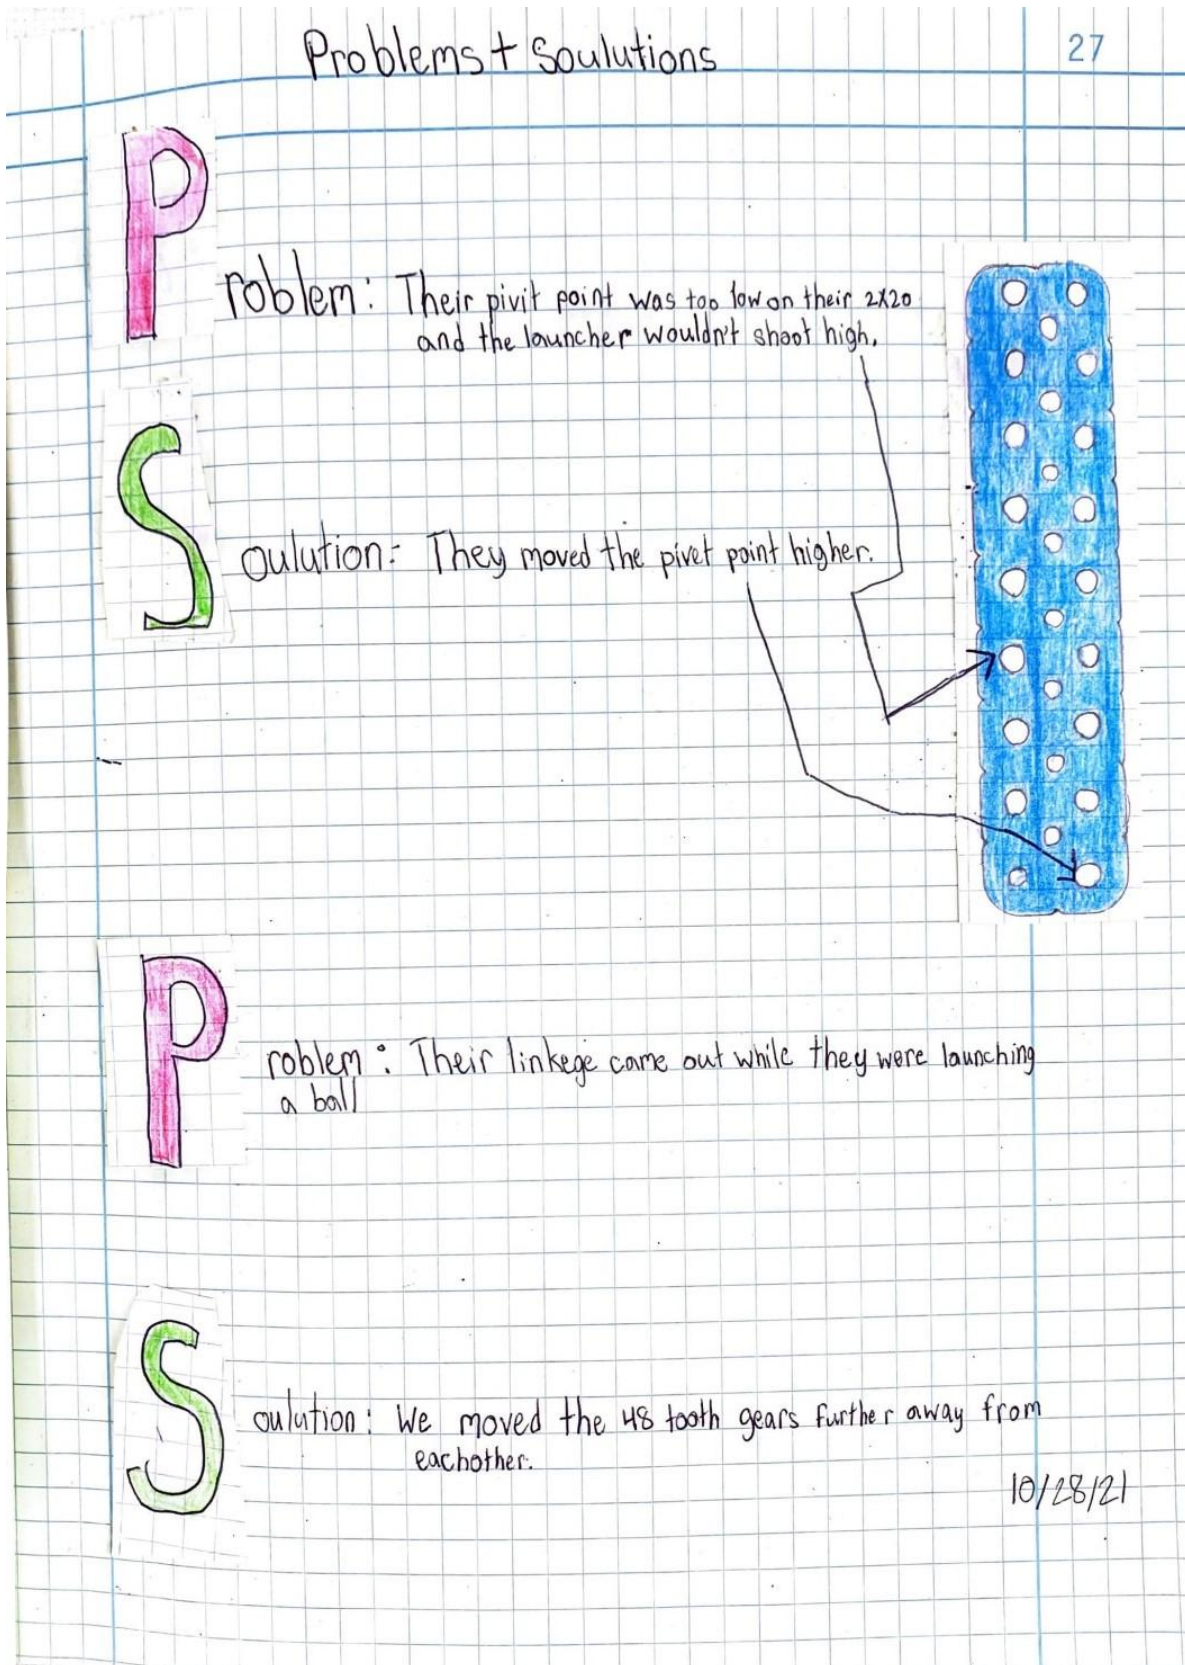 Problems + Soulutions
27
Problem: Their pivit point was too low on their 2x20
and the launcher wouldn't shoot high.
Soulution: They moved the pivet point higher.
Problem: Their linkege came out while they were launching
a ball
Soulution: We moved the 48 tooth gears further away from
eachother.
10/28/21